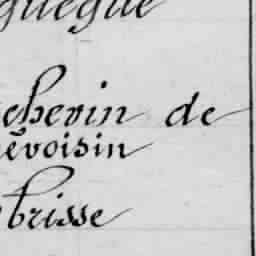 guegue
chevin de
evoisin
brisse